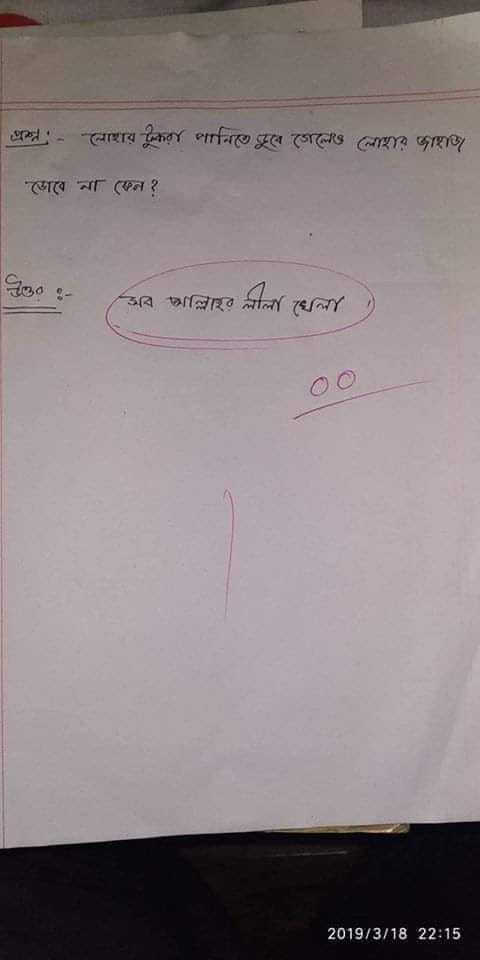 প্রশ্ন :- লোহার টুকরা পানিতে ডুবে গেলেও লোহার জাহাজ
ডোবে না কেন?
উত্তর :- সব আল্লাহর লীলা খেলা
00
2019/3/18 22:15